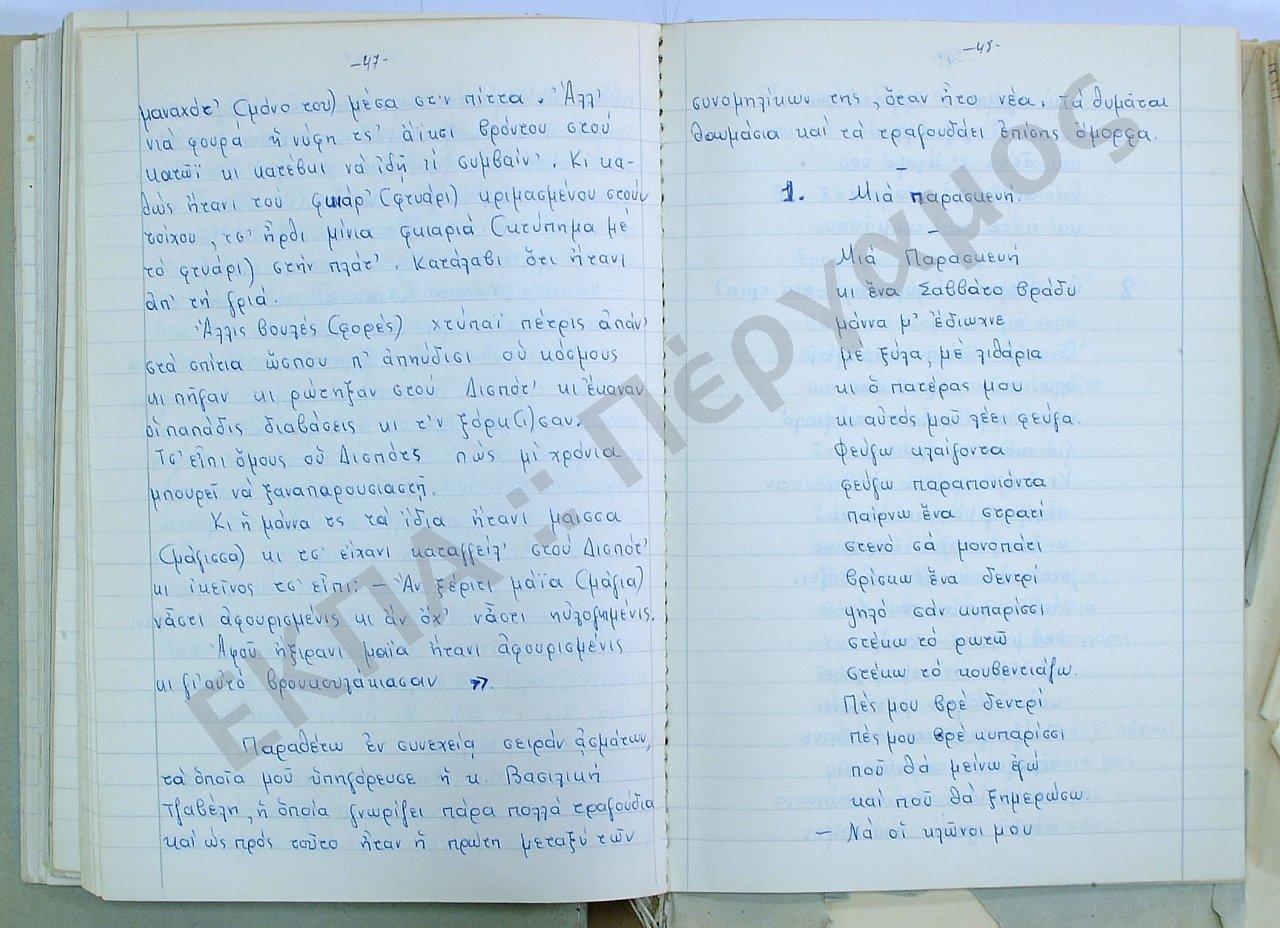 -47-
μαναχότ' (μόνο του) μέσα στ'ν πίττα. Ἀλλ'
νιά φουρά ἡ νύφη τς' ἄϊκσι βρόντου στού
κατώϊ κι κατέβκι νά ἰδῆ τί συμβαίν'. Κι κα-
θώς ἤτανι τού φκιάρ' (φτυάρι) κριμασμένου στούν
τοίχου, τσ' ἦρθι μίνια φκιαριά (κτύπημα μέ
τό φτυάρι) στήν πλάτ'. Κατάλαβι ὅτι ἤτανι
ἀπ' τή γριά.
Ἄλλις βουλές (φορές) χτύπαϊ πέτρις ἀπάν'
στά σπίτια ὥσπου π' ἀπηύδισι οὑ κόσμους
κι πῆγαν κι ρώτηξαν στού Δισπότ' κι ἔκαναν
οἱ παπάδις διαβάσεις κι τ'ν ξόρκ(ι)σαν.
Τσ' εἶπι ὅμους οὑ Δισπότς πώς μί χρόνια
μπουρεῖ νά ξαναπαρουσιαστῆ.
Κι ἡ μάννα τς τά ἴδια ἤτανι μάισσα
(μάγισσα) κι τσ' εἴχανι καταγγείλ' στού Δισπότ'
κι ἰκεῖνος τσ' εἶπι: — Ἄν ξέριτι μάϊα (μάγια)
νἆστι ἀφουρισμένις κι ἄν ὄχ' νἆστι ηὐλογημένις.
Ἀφοῦ ἤξιρανι μάϊα ἤτανι ἀφουρισμένις
κι γι' αὐτό βρουκουλάκιασαν ».
Παραθέτω ἐν συνεχείᾳ σειράν ᾀσμάτων,
τά ὁποῖα μοῦ ὑπηγόρευσε ἡ κ. Βασιλική
Τζαβέλη, ἡ ὁποία γνωρίζει πάρα πολλά τραγούδια
καί ὡς πρός τοῦτο ἦταν ἡ πρώτη μεταξύ τῶν
-48-
συνομηλίκων της, ὅταν ἦτο νέα. Τά θυμᾶται
θαυμάσια καί τά τραγουδάει ἐπίσης ὄμορφα.
1. Μιά παρασκευή.
Μιά Παρασκευή
κι ἕνα Σαββάτο βράδυ
μάννα μ' ἔδιωχνε
μέ ξύλα, μέ λιθάρια
κι ὁ πατέρας μου
κι αὐτός μοῦ λέει φεύγα.
Φεύγω κλαίγοντα
φεύγω παραπονιόντα
παίρνω ἕνα στρατί
στενό σά μονοπάτι
βρίσκω ἕνα δεντρί
ψηλό σάν κυπαρίσσι
στέκω τό ρωτῶ
στέκω τό κουβεντιάζω.
Πές μου βρέ δεντρί
πές μου βρέ κυπαρίσσι
ποῦ θά μείνω ἐγώ
καί ποῦ θά ξημερώσω.
— Νά οἱ κλῶνοι μου
ΕΚΠΑ :: Πέργαμος